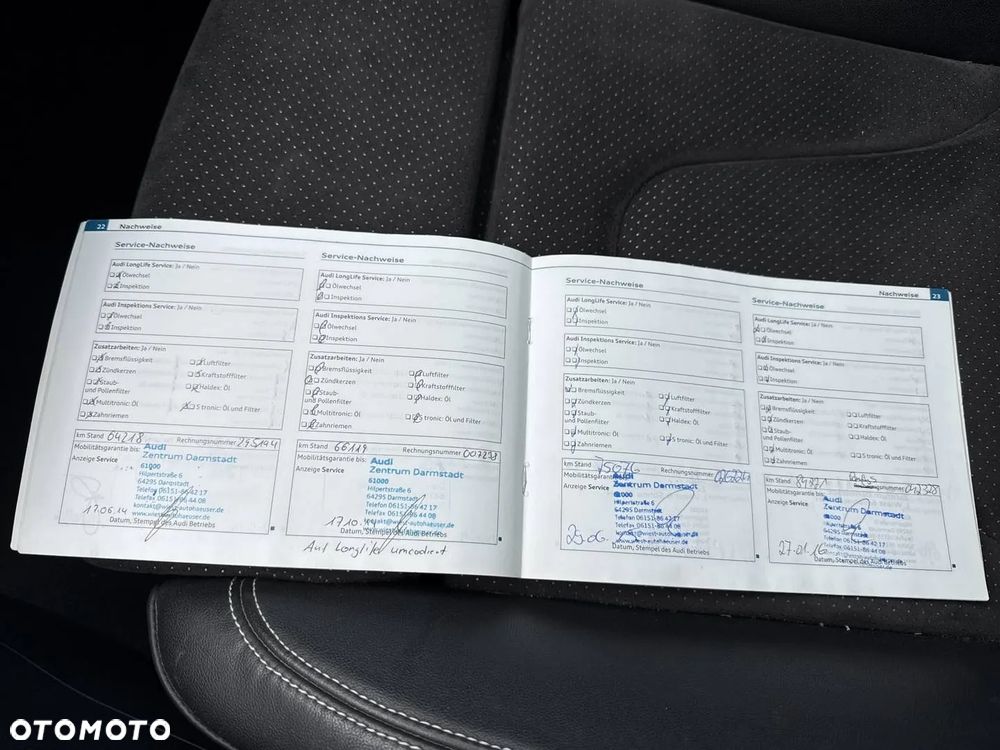 22 Nachweise
Service-Nachweise
Audi LongLife Service: Ja / Nein
Ölwechsel
Inspektion
Audi Inspektions Service: Ja / Nein
Ölwechsel
Inspektion
Zusatzarbeiten: Ja / Nein
Bremsflüssigkeit
Luftfilter
Zündkerzen
Kraftstofffilter
Staub-
und Pollenfilter
Haldex: Öl
Multitronic: Öl
S tronic: Öl und Filter
Zahnriemen
km Stand 64218 Rechnungsnummer
Mobilitätsgarantie bis:
Anzeige Service
Audi
Zentrum Darmstadt
61000
Hilpertstraße 6
64295 Darmstadt
Telefon 06151-86 42 17
Telefax 06151-86 44 08
kontakt@wiest-autohaeuser.de
www.wiest-autohaeuser.de
17.06.14
Datum, Stempel des Audi Betriebs
Service-Nachweise
Audi LongLife Service: Ja / Nein
Ölwechsel
Inspektion
Audi Inspektions Service: Ja / Nein
Ölwechsel
Inspektion
Zusatzarbeiten: Ja / Nein
Bremsflüssigkeit
Luftfilter
Zündkerzen
Kraftstofffilter
Staub-
und Pollenfilter
Haldex: Öl
Multitronic: Öl
S tronic: Öl und Filter
Zahnriemen
km Stand 66119 Rechnungsnummer
Mobilitätsgarantie bis:
Anzeige Service
Audi
Zentrum Darmstadt
61000
Hilpertstraße 6
64295 Darmstadt
Telefon 06151-86 42 17
Telefax 06151-86 44 08
kontakt@wiest-autohaeuser.de
www.wiest-autohaeuser.de
17.10.14
Datum, Stempel des Audi Betriebs
Auf Longlife umcodiert
Nachweise 23
Service-Nachweise
Audi LongLife Service: Ja / Nein
Ölwechsel
Inspektion
Audi Inspektions Service: Ja / Nein
Ölwechsel
Inspektion
Zusatzarbeiten: Ja / Nein
Bremsflüssigkeit
Luftfilter
Zündkerzen
Kraftstofffilter
Staub-
und Pollenfilter
Haldex: Öl
Multitronic: Öl
S tronic: Öl und Filter
Zahnriemen
km Stand Rechnungsnummer
Mobilitätsgarantie bis:
Anzeige Service
Audi
Zentrum Darmstadt
61000
Hilpertstraße 6
64295 Darmstadt
Telefon 06151-86 42 17
Telefax 06151-86 44 08
kontakt@wiest-autohaeuser.de
www.wiest-autohaeuser.de
Datum, Stempel des Audi Betriebs
Service-Nachweise
Audi LongLife Service: Ja / Nein
Ölwechsel
Inspektion
Audi Inspektions Service: Ja / Nein
Ölwechsel
Inspektion
Zusatzarbeiten: Ja / Nein
Bremsflüssigkeit
Luftfilter
Zündkerzen
Kraftstofffilter
Staub-
und Pollenfilter
Haldex: Öl
Multitronic: Öl
S tronic: Öl und Filter
Zahnriemen
km Stand
Mobilitätsgarantie bis:
Anzeige Service
Audi
Zentrum Darmstadt
Hilpertstraße 6
64295 Darmstadt
Telefon 06151-86 42 17
Telefax 06151-86 44 08
27.01.16
Datum, Stempel des Audi Betriebs
OTOMOTO